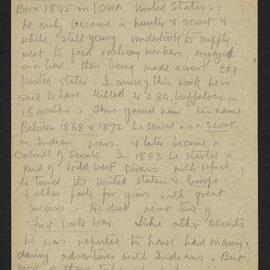 Born 1845 in IOWA United States:
he early became a hunter & scout &
while still young undertook to supply
meat to feed railway workers engaged
on line, then being made across the
United States. In course of this work he is
said to have killed 4280 buffaloes in
18 months. This gained him his name
Between 1868 & 1872 he served as a scout
in Indian wars. & later became a
Colonel of Scouts. In 1883 he started a
kind of Wild West Circus with which
he toured the United States & Europe
& other parts for years with great
success. He died
first World War. Like other scouts
he was reputed to have had many
daring adventures with Indians. But